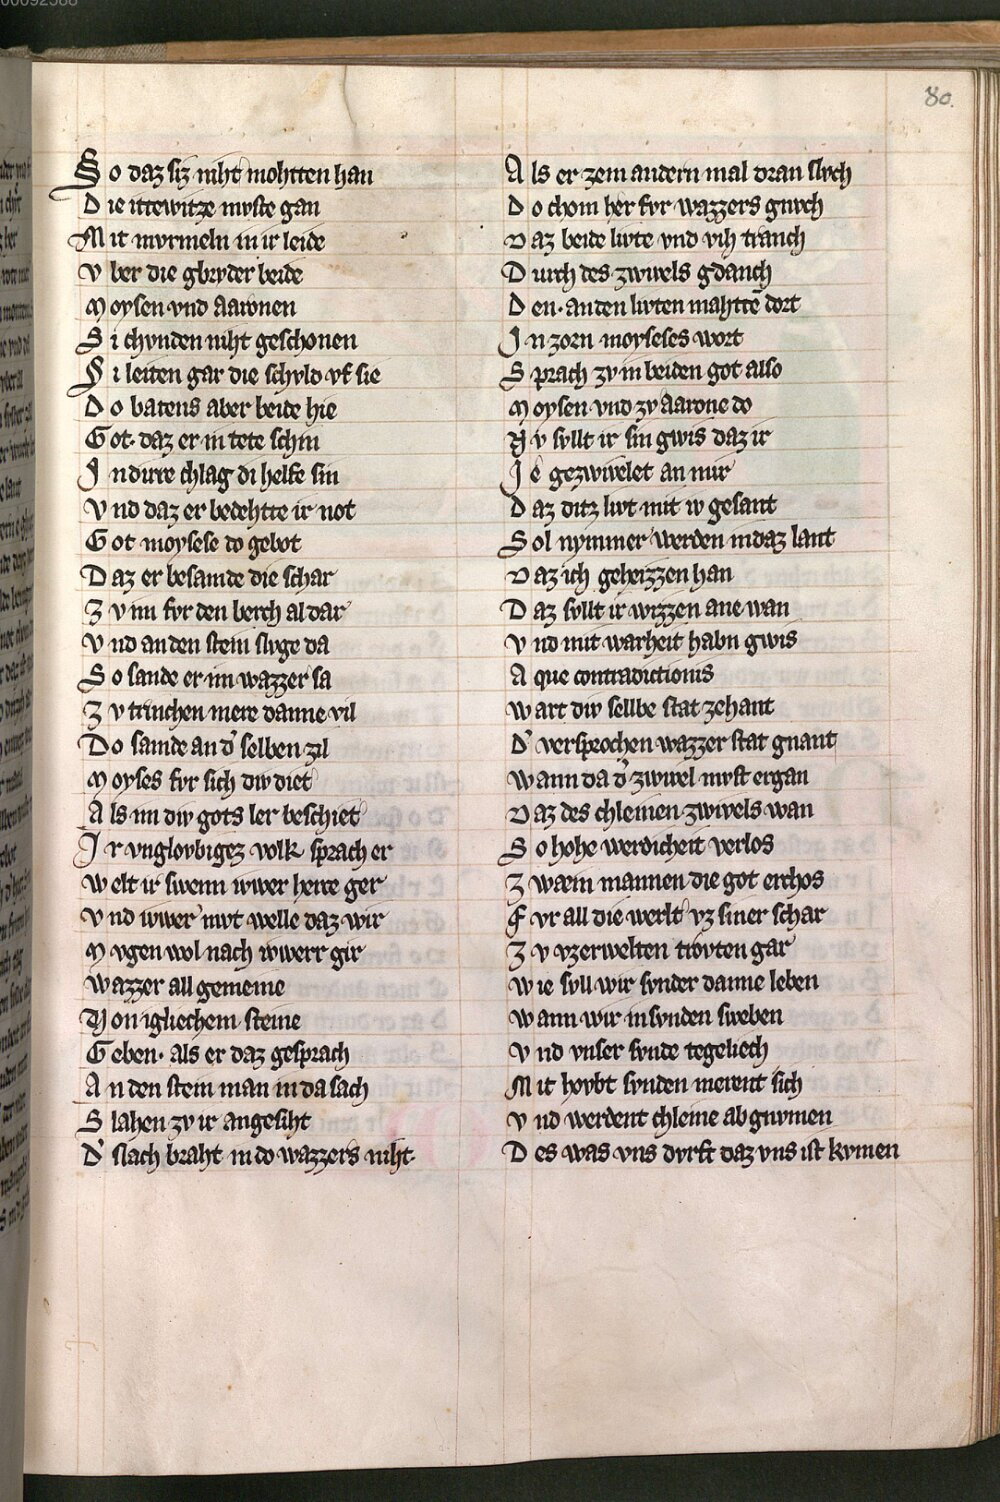 00092588
80.
So daz siz niht mohtten han
Die itewitze mvste gan
Mit mvrmeln in ir leide
Vber die gbrvder beide
Moysen vnd aaronen
Si chvnden niht geschonen
Si leiten gar die schvld vf sie
Do batens aber beide hie
Got daz er in tete schin
In dirre chlag di helfe sin
Vnd daz er bedehtte ir not
Got moysese do gebot
Daz er besamde die schar
Zv im fvr den berch al dar
Vnd an den stein slvge da
So sande er im wazzer sa
Zv trinchen mere danne vil
Do samde an d' selben zil
Moyses fvr sich div diet
Als im div gots ler beschiet
Ir vngloybigez volk sprach er
Welt ir swenn iwer herce ger
Vnd iwer mvt welle daz wir
Mvgen wol nach iwerr gir
Wazzer all gemeine
Von igliechem steine
Geben· als er daz gesprach
An den stein man in da sach
Slahen zv ir angesiht
D' slach braht in do wazzers niht
Als er zem andern mal dran slvch
Do chom her fvr wazzers gnvch
Daz beide livte vnd vih tranch
Durch des zwivels gdanch
Den· an den livten mahttē dort
In zorn moyseses wort
Sprach zv in beiden got also
Moysen vnd zv Aarone do
Nv svllt ir sin gwis daz ir
Ie gezwivelet an mir
Daz ditz livt mit iv gesant
Sol nymmer werden in daz lant
Daz ich geheizzen han
Daz svllt ir wizzen ane wan
Vnd mit warheit habn gwis
Aque contradictionis
Wart div sellbe stat zehant
D' versprochen wazzer stat gnant
Wann da d' zwivel mvst ergan
Daz des chleinen zwivels wan
So hohe werdicheit verlos
Zwæin mannen die got erchos
Fvr all die werlt vz siner schar
Zv vzerwelten trovten gar
Wie svll wir svnder danne leben
Wann wir in svnden sweben
Vnd vnser svnde tegeliech
Mit hovbt svnden merent sich
Vnd werdent chleine ab gnvmen
Des was vns dvrft daz vns ist kvmen